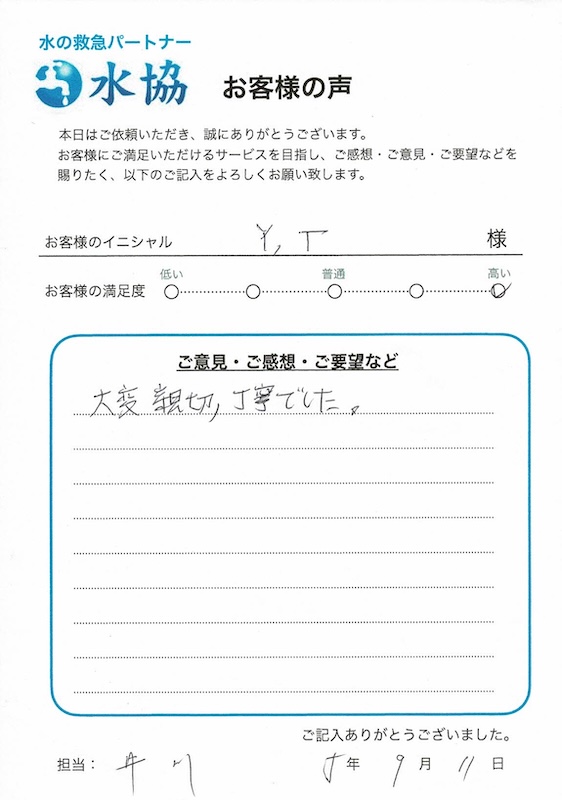 水の救急パートナー
水協 お客様の声
本日はご依頼いただき、誠にありがとうございます。
お客様にご満足いただけるサービスを目指し、ご感想・ご意見・ご要望などを
賜りたく、以下のご記入をよろしくお願い致します。
お客様のイニシャル Y, T 様
低い 普通 高い
お客様の満足度
ご意見・ご感想・ご要望など
大変親切,丁寧でした。
ご記入ありがとうございました。
担当： 井川 5年 9月 11日